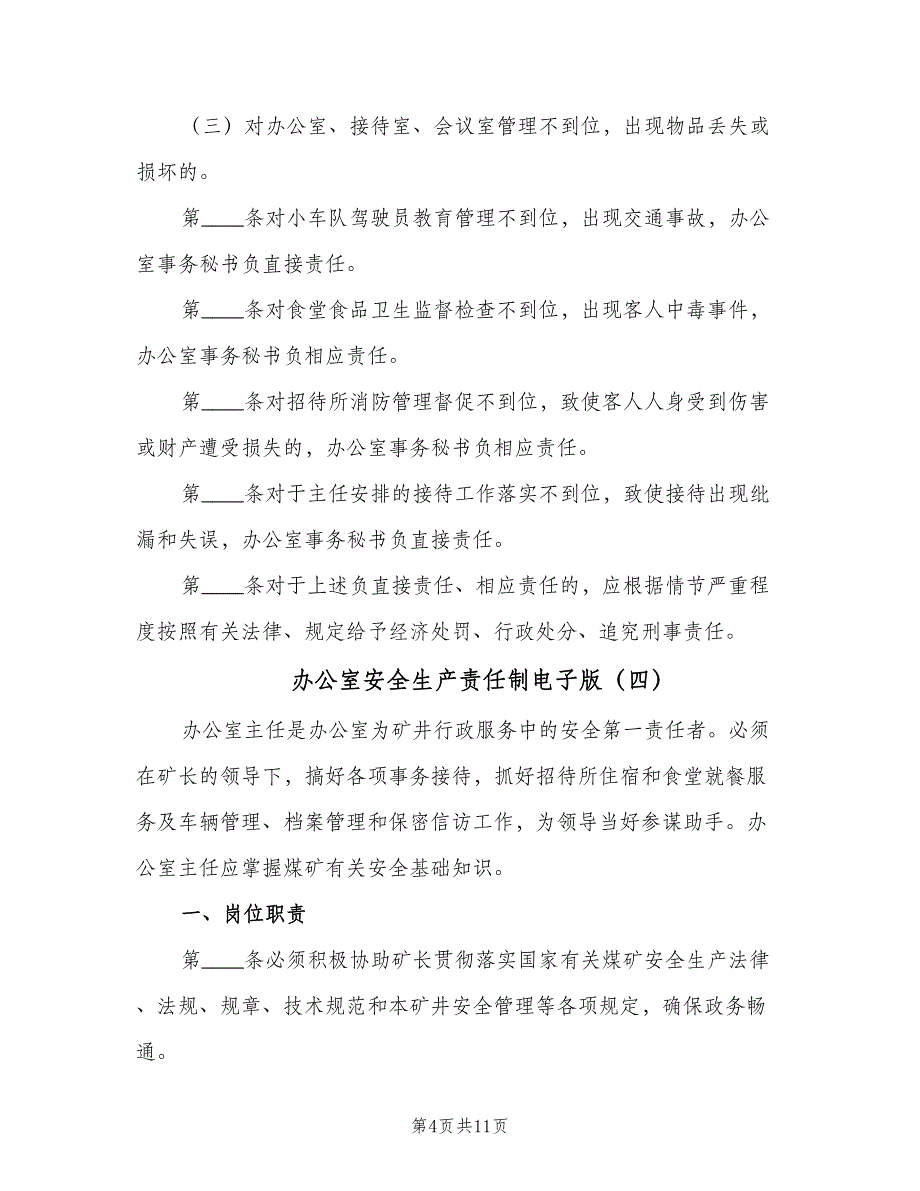 （三）对办公室、接待室、会议室管理不到位，出现物品丢失或
损坏的。
第____条对小车队驾驶员教育管理不到位，出现交通事故，办公
室事务秘书负直接责任。
第____条对食堂食品卫生监督检查不到位，出现客人中毒事件，
办公室事务秘书负相应责任。
第____条对招待所消防管理督促不到位，致使客人人身受到伤害
或财产遭受损失的，办公室事务秘书负相应责任。
第____条对于主任安排的接待工作落实不到位，致使接待出现纰
漏和失误，办公室事务秘书负直接责任。
第____条对于上述负直接责任、相应责任的，应根据情节严重程
度按照有关法律、规定给予经济处罚、行政处分、追究刑事责任。
办公室安全生产责任制电子版（四）
办公室主任是办公室为矿井行政服务中的安全第一责任者。必须
在矿长的领导下，搞好各项事务接待，抓好招待所住宿和食堂就餐服
务及车辆管理、档案管理和保密信访工作，为领导当好参谋助手。办
公室主任应掌握煤矿有关安全基础知识。
一、岗位职责
第____条必须积极协助矿长贯彻落实国家有关煤矿安全生产法律
、法规、规章、技术规范和本矿井安全管理等各项规定，确保政务畅
通。
第4页共11页